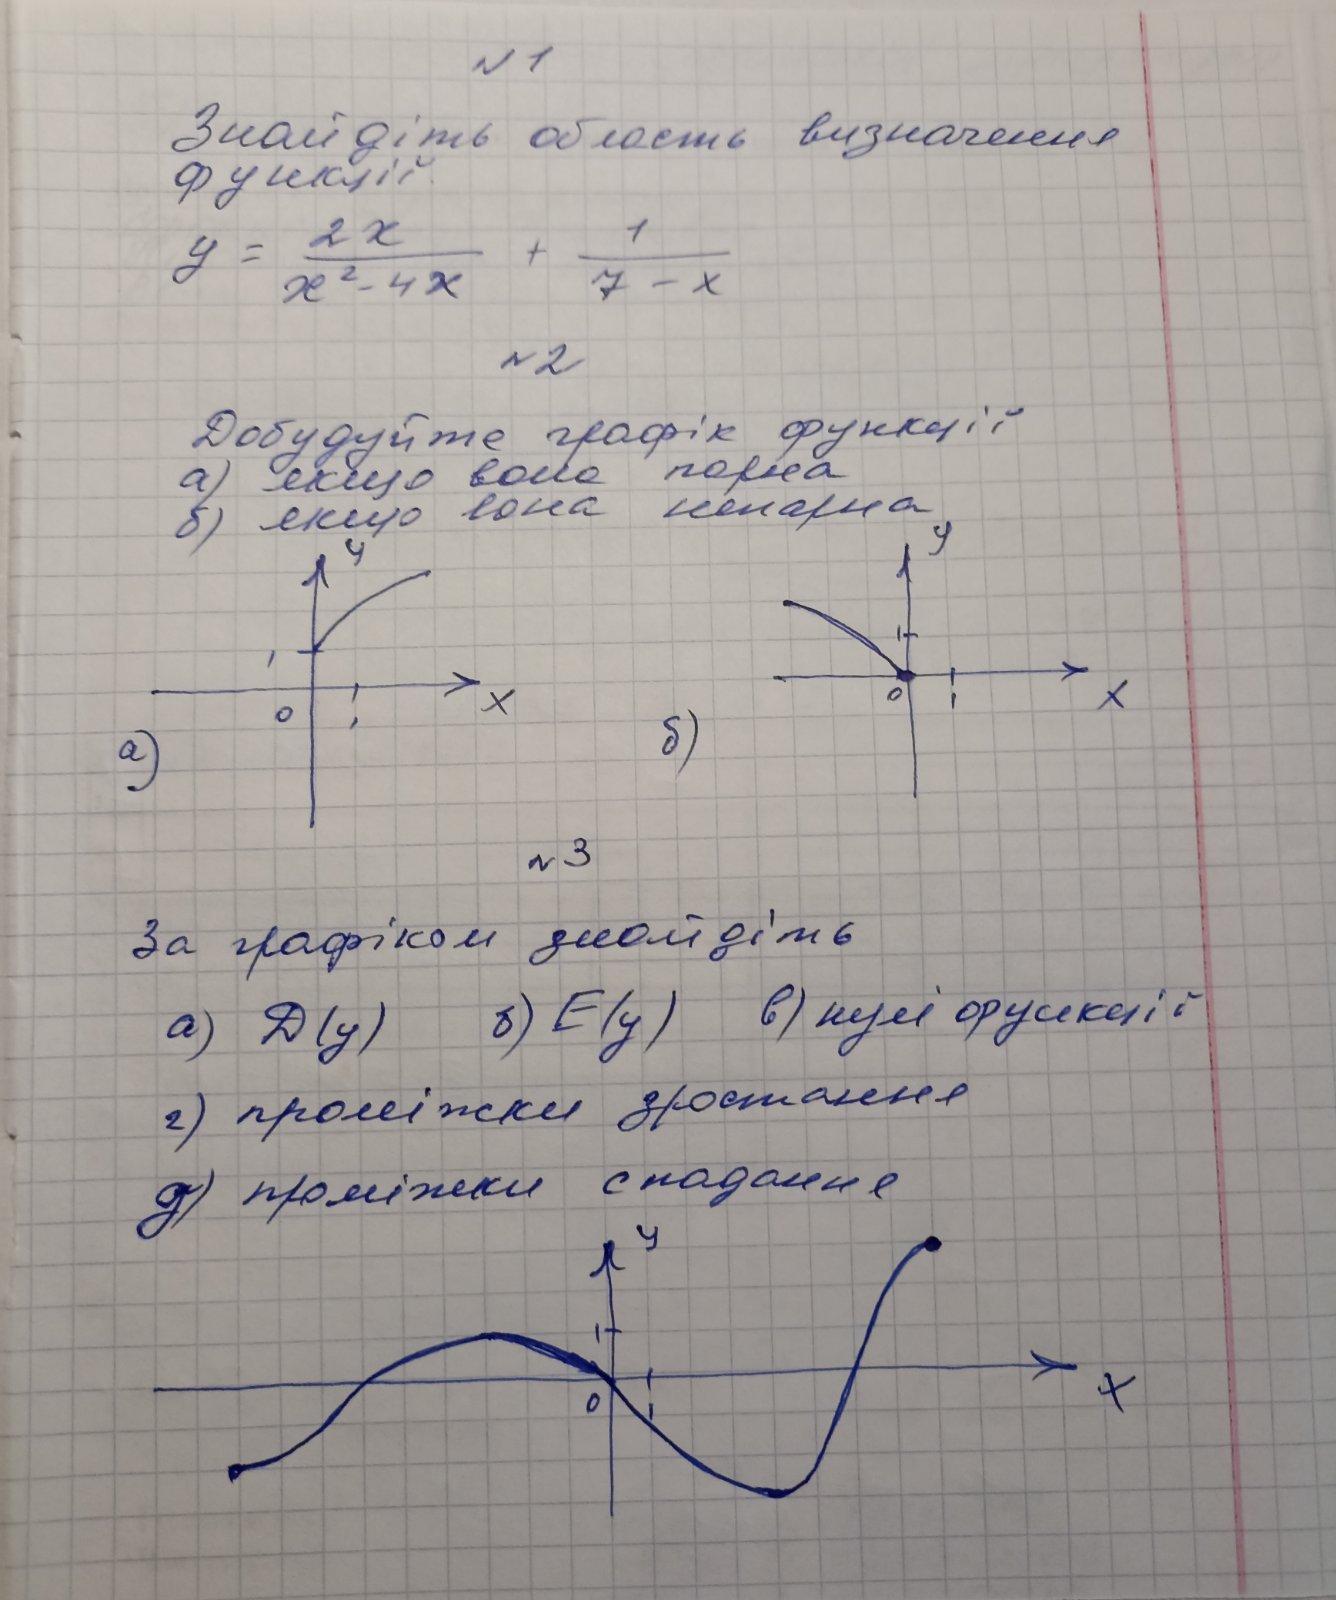 №1
Знайдіть область визначення
функції.
y = 2x / (x² - 4x) + 1 / (7 - x)
№2
Добудуйте графік функції
а) якщо вона парна
б) якщо вона непарна
y y
1 1
0 1 x 0 1 x
а) б)
№3
За графіком знайдіть
а) D(y) б) E(y) в) нулі функції
г) проміжки зростання
д) проміжки спадання
y
1
0 1 x